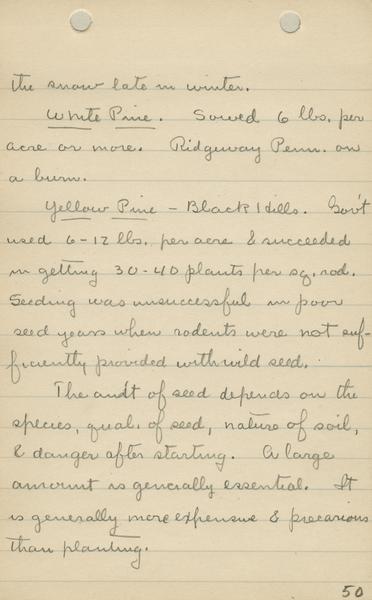 the snow late in winter.
White Pine. Sowed 6 lbs. per
acre or more. Ridgeway Penn. on
a burn.
Yellow Pine - Black Hills. Gov't
used 6-12 lbs. per acre & succeeded
in getting 30-40 plants per sq. rod.
Seeding was unsuccessful in poor
seed years when rodents were not suf-
ficiently provided with wild seed.
The am't of seed depends on the
species, qual. of seed, nature of soil,
& danger after starting. A large
amount is generally essential. It
is generally more expensive & precarious
than planting.
50